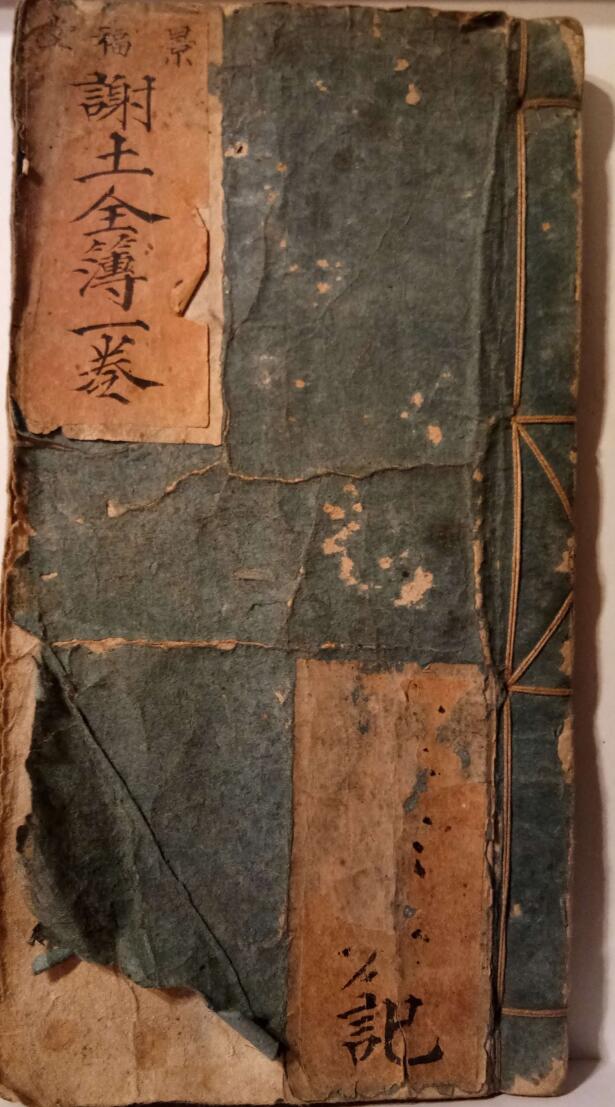 景福堂
謝土全簿一卷
記